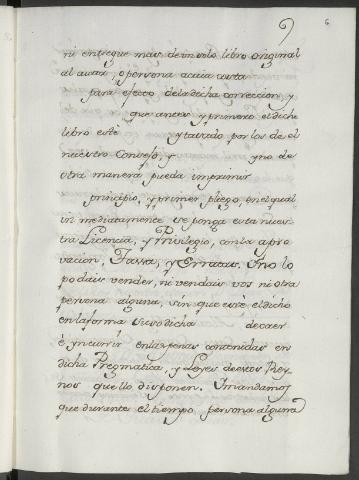 6
ni entregue mas de un solo libro original
al autor, o persona a cuia costa
para efecto de la dicha correccion, y
que antes y primero el dicho
libro esté y tassado por los de el
nuestro Consejo, y y no de
otra manera pueda imprimir
principio, y primer pliego, en el qual
inmediatamente se ponga esta nues
tra Licencia, y Privilegio, con la apro
vacion, Tassa, y Erratas. Y no lo
podais vender, ni vendais vos ni otra
persona alguna, sin que esté el dicho
en la forma susodicha de caer
é yncurrir en las penas contenidas en
dicha Pregmatica, y Leyes de estos Rey
nos que llo disponen. Y mandamos
que durante el tiempo persona alguna